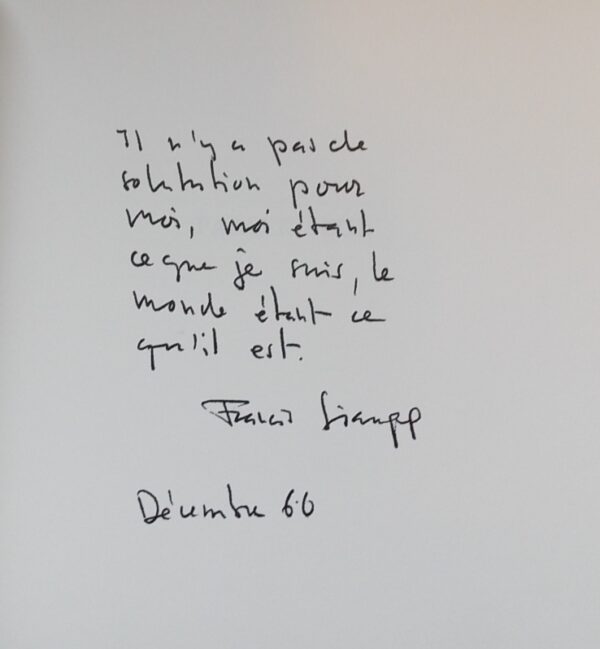 Il n'y a pas de
solutution pour
moi, moi étant
ce que je suis, le
monde étant ce
qu'il est.
Francis
Décembre 66